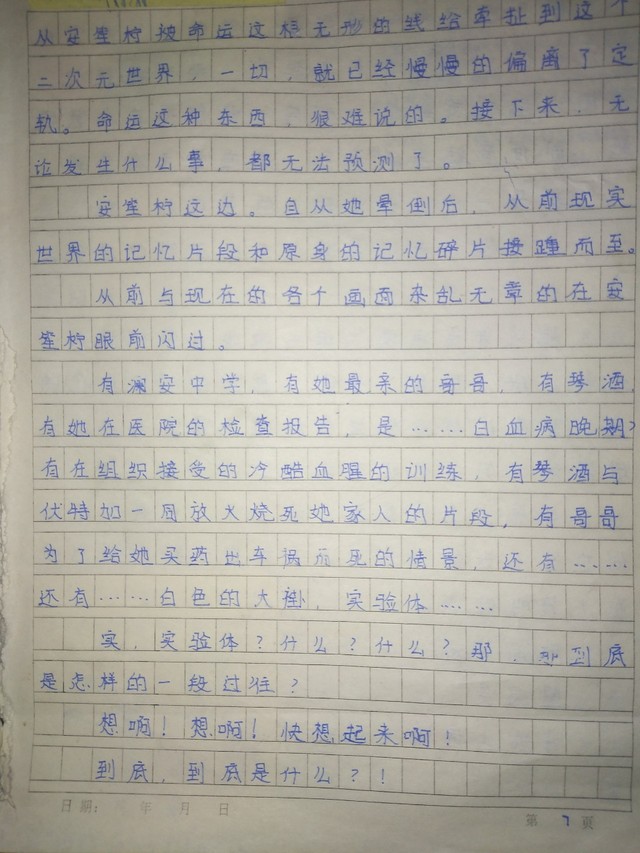 从安笙柠被命运这根无形的线给牵扯到这个
二次元世界，一切，就已经慢慢的偏离了定
轨。命运这种东西，很难说的。接下来，无
论发生什么事，都无法预测了。
安笙柠这边。自从她晕倒后，从前现实
世界的记忆片段和原身的记忆碎片接踵而至。
从前与现在的各个画面杂乱无章的在安
笙柠眼前闪过。
有澜安中学，有她最亲的哥哥，有琴酒
有她在医院的检查报告，是……白血病晚期？
有在组织接受的冷酷血腥的训练，有琴酒与
伏特加一同放火烧死她家人的片段，有哥哥
为了给她买药出车祸而死的情景，还有……
还有……白色的大褂，实验体……
实，实验体？什么？什么？那，到底
是怎样的一段过往？
想啊！想啊！快想起来啊！
到底，到底是什么？！
日期： 年 月 日
第 7 页